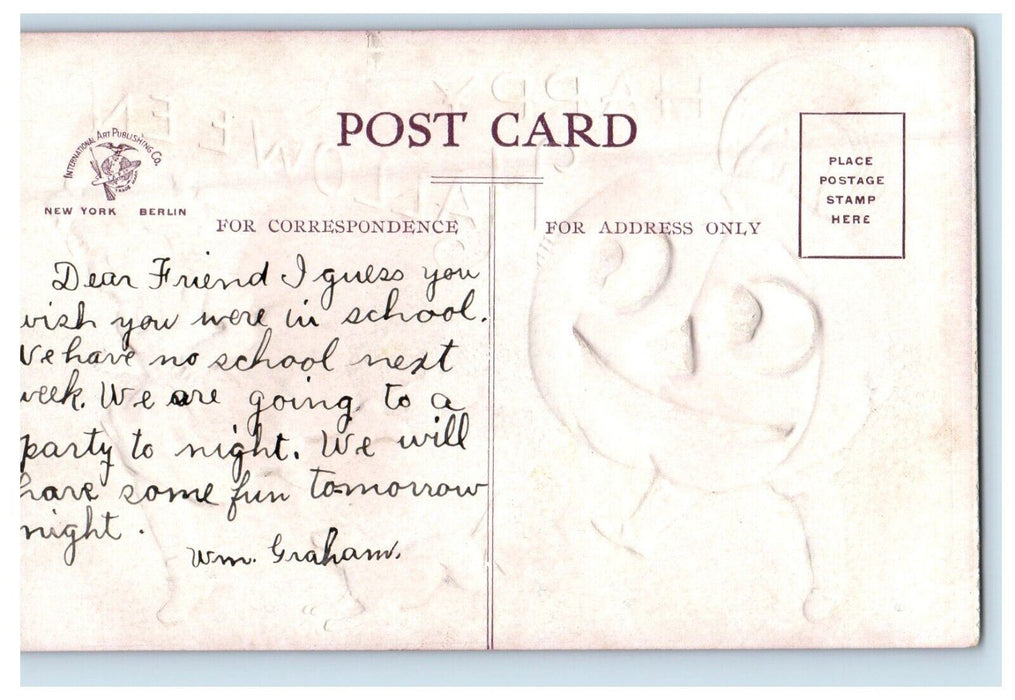 POST CARD
INTERNATIONAL ART PUBLISHING CO.
NEW YORK BERLIN
PLACE
POSTAGE
STAMP
HERE
FOR CORRESPONDENCE
FOR ADDRESS ONLY
Dear Friend I guess you
wish you were in school.
We have no school next
week. We are going to a
party to night. We will
have some fun tomorrow
night.
Wm. Graham.
HAPPY